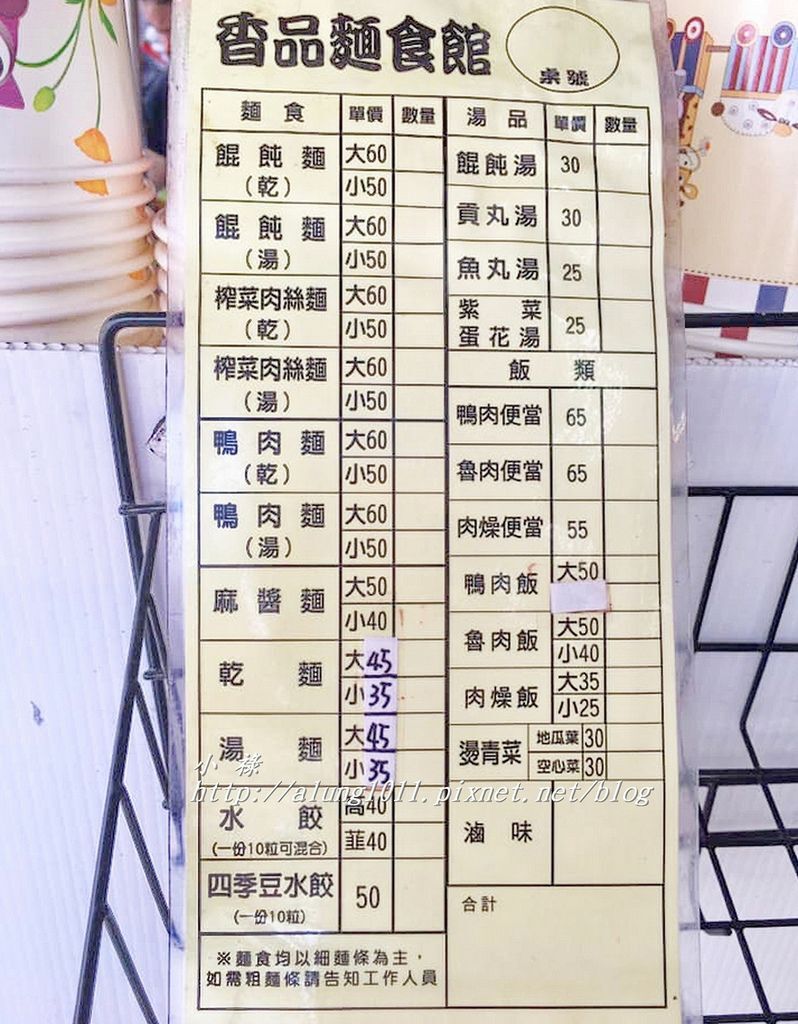 香品麵食館
桌號
麵食 單價 數量
餛飩麵 大60
(乾) 小50
餛飩麵 大60
(湯) 小50
榨菜肉絲麵 大60
(乾) 小50
榨菜肉絲麵 大60
(湯) 小50
鴨肉麵 大60
(乾) 小50
鴨肉麵 大60
(湯) 小50
麻醬麵 大50
小40
乾麵 大45
小35
湯麵 大45
小35
水餃 高40
(一份10粒可混合) 韮40
四季豆水餃 50
(一份10粒)
※麵食均以細麵條為主，
如需粗麵條請告知工作人員
湯品 單價 數量
餛飩湯 30
貢丸湯 30
魚丸湯 25
紫菜
蛋花湯 25
飯類
鴨肉便當 65
魯肉便當 65
肉燥便當 55
鴨肉飯 大50
魯肉飯 大50
小40
肉燥飯 大35
小25
燙青菜 地瓜葉 30
空心菜 30
滷味
合計
小祿
http://alung1011.pixnet.net/blog